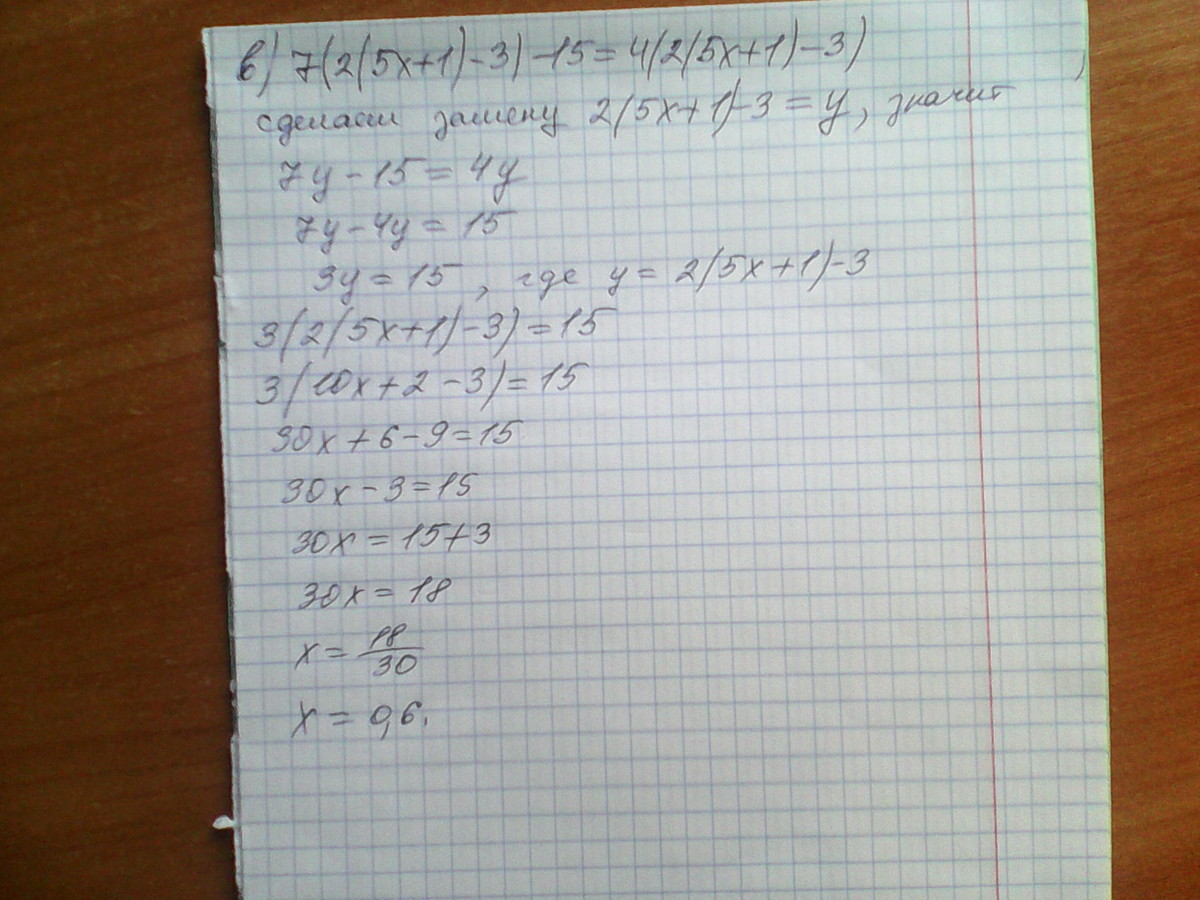 в) 7(2(5x+1)-3)-15=4(2(5x+1)-3)
сделаем замену 2(5x+1)-3=y, значит
7y-15=4y
7y-4y=15
3y=15, где y=2(5x+1)-3
3(2(5x+1)-3)=15
3(10x+2-3)=15
30x+6-9=15
30x-3=15
30x=15+3
30x=18
x=18/30
x=0,6.